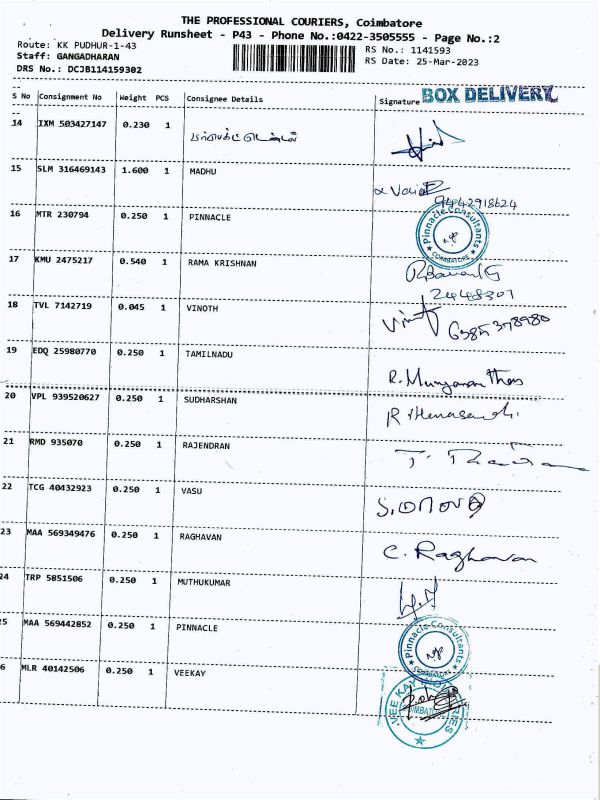 THE PROFESSIONAL COURIERS, Coimbatore
Delivery Runsheet - P43 - Phone No.:0422-3505555 - Page No.:2
Route: KK PUDHUR-1-43
RS No.: 1141593
Staff: GANGADHARAN
RS Date: 25-Mar-2023
DRS No.: DCJB114159302
S No Consignment No Weight PCS Consignee Details Signature BOX DELIVERY
14 IXM 503427147 0.230 1
15 SLM 316469143 1.600 1 MADHU
9442918624
16 MTR 230794 0.250 1 PINNACLE
Pinnacle Consultants
COIMBATORE
17 KMU 2475217 0.540 1 RAMA KRISHNAN
18 TVL 7142719 0.045 1 VINOTH
19 EDQ 25980770 0.250 1 TAMILNADU
20 VPL 939520627 0.250 1 SUDHARSHAN
21 RMD 935070 0.250 1 RAJENDRAN
22 TCG 40432923 0.250 1 VASU
23 MAA 569349476 0.250 1 RAGHAVAN C. Raghavan
24 TRP 5851506 0.250 1 MUTHUKUMAR
5 MAA 569442852 0.250 1 PINNACLE
Pinnacle Consultants
COIMBATORE
6 MLR 40142506 0.250 1 VEEKAY